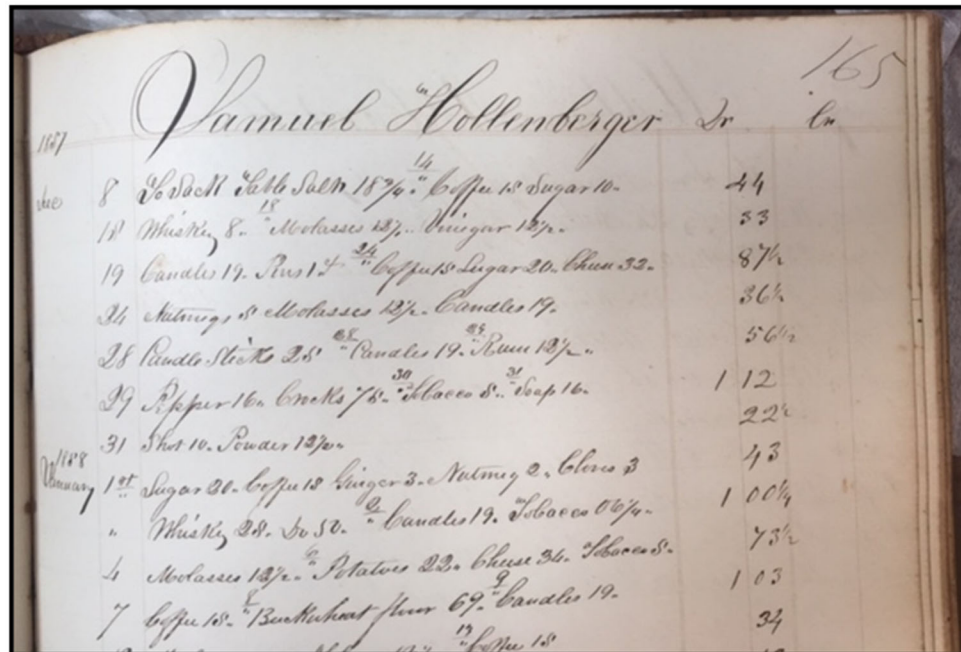 165
Samuel Hollenberger Dr Cr
1857
Dec 8 To Sack Table Salt 18 3/4 " 14 Coffee 15 Sugar 10 - 44
18 Whiskey 8 " 18 Molasses 12 1/2 - Vinegar 12 1/2 - 33
19 Candles 19 - Pins 1 " 24 Coffee 15 Sugar 20 - Cheese 32 - 87 1/2
24 Nutmegs 5 Molasses 12 1/2 - Candles 19 - 36 1/2
28 Candle Sticks 25 " Candles 19 - " Rum 12 1/2 - 56 1/2
29 Pepper 16 - Crocks 75 - " 30 Tobacco 5 - " 31 Soap 16 - 1 12
31 Shot 10 - Powder 12 1/2 - 22 1/2
1858
January 1st Sugar 20 - Coffee 15 Ginger 3 - Nutmeg 2 - Cloves 3 43
" Whiskey 25 - Do 50 - " 2 Candles 19 - Tobacco 06 1/4 - 1 00 1/4
4 Molasses 12 1/2 - " 6 Potatoes 22 - Cheese 34 - Tobacco 5 - 73 1/2
7 Coffee 15 - " 8 Buckwheat flour 69 - " 9 Candles 19 - 1 03
" 13 Coffee 15 34